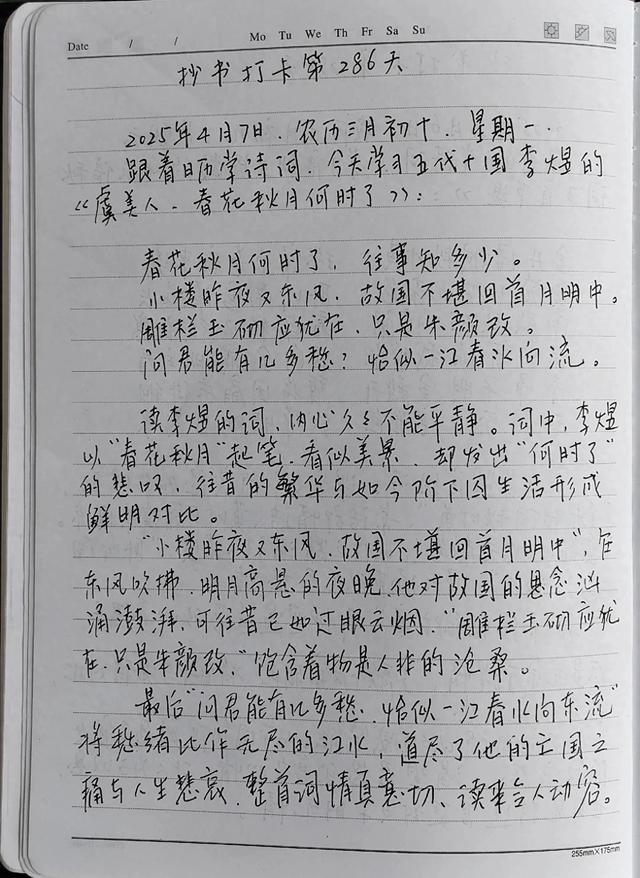 Date / / Mo Tu We Th Fr Sa Su
抄书打卡第286天
2025年4月7日.农历三月初十.星期一.
跟着日历学诗词.今天学习五代十国李煜的
《虞美人.春花秋月何时了》:
春花秋月何时了,往事知多少。
小楼昨夜又东风.故国不堪回首月明中。
雕栏玉砌应犹在.只是朱颜改。
问君能有几多愁?恰似一江春水向流。
读李煜的词,内心久久不能平静。词中,李煜
以“春花秋月”起笔.看似美景.却发出“何时了”
的悲叹.往昔的繁华与如今阶下囚生活形成
鲜明对比。
“小楼昨夜又东风.故国不堪回首月明中”,在
东风吹拂.明月高悬的夜晚.他对故国的思念汹
涌澎湃.可往昔已如过眼云烟.“雕栏玉砌应犹
在.只是朱颜改.”饱含着物是人非的沧桑。
最后“问君能有几多愁.恰似一江春水向东流”
将愁绪比作无尽的江水,道尽了他的亡国之
痛与人生悲哀.整首词情真意切、读来令人动容。
255mm×175mm